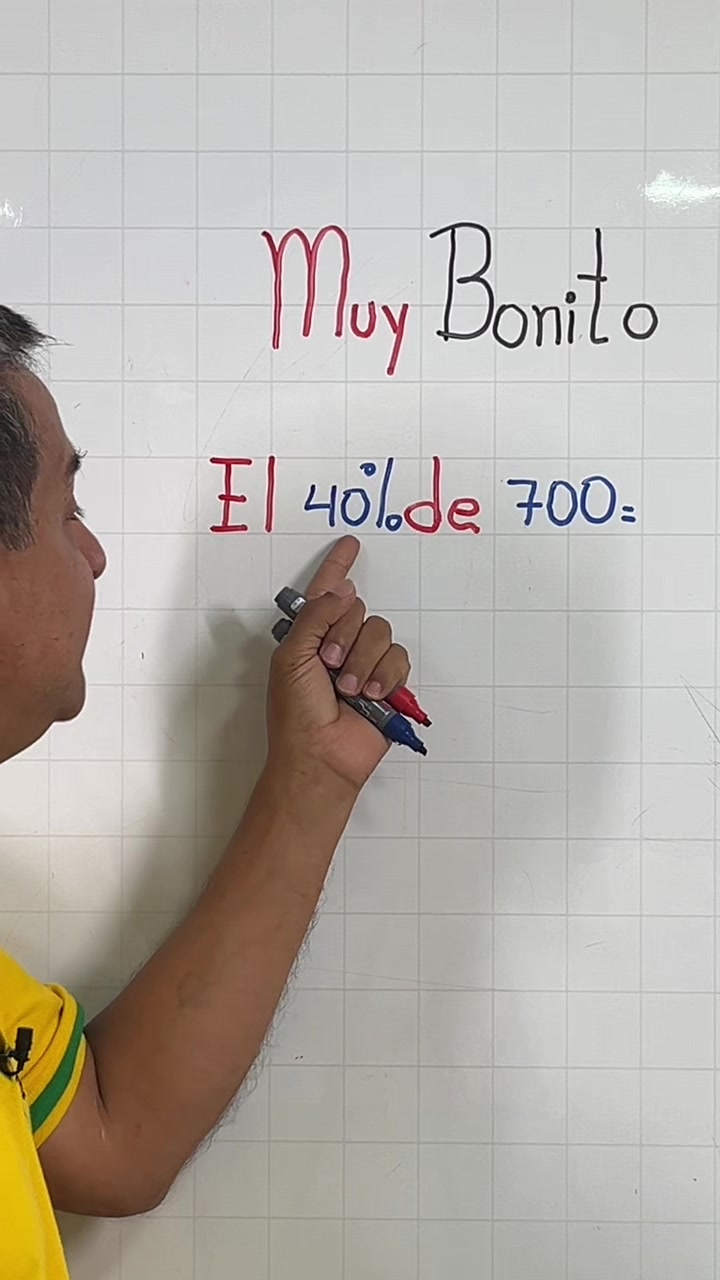 Muy Bonito
El 40% de 700=